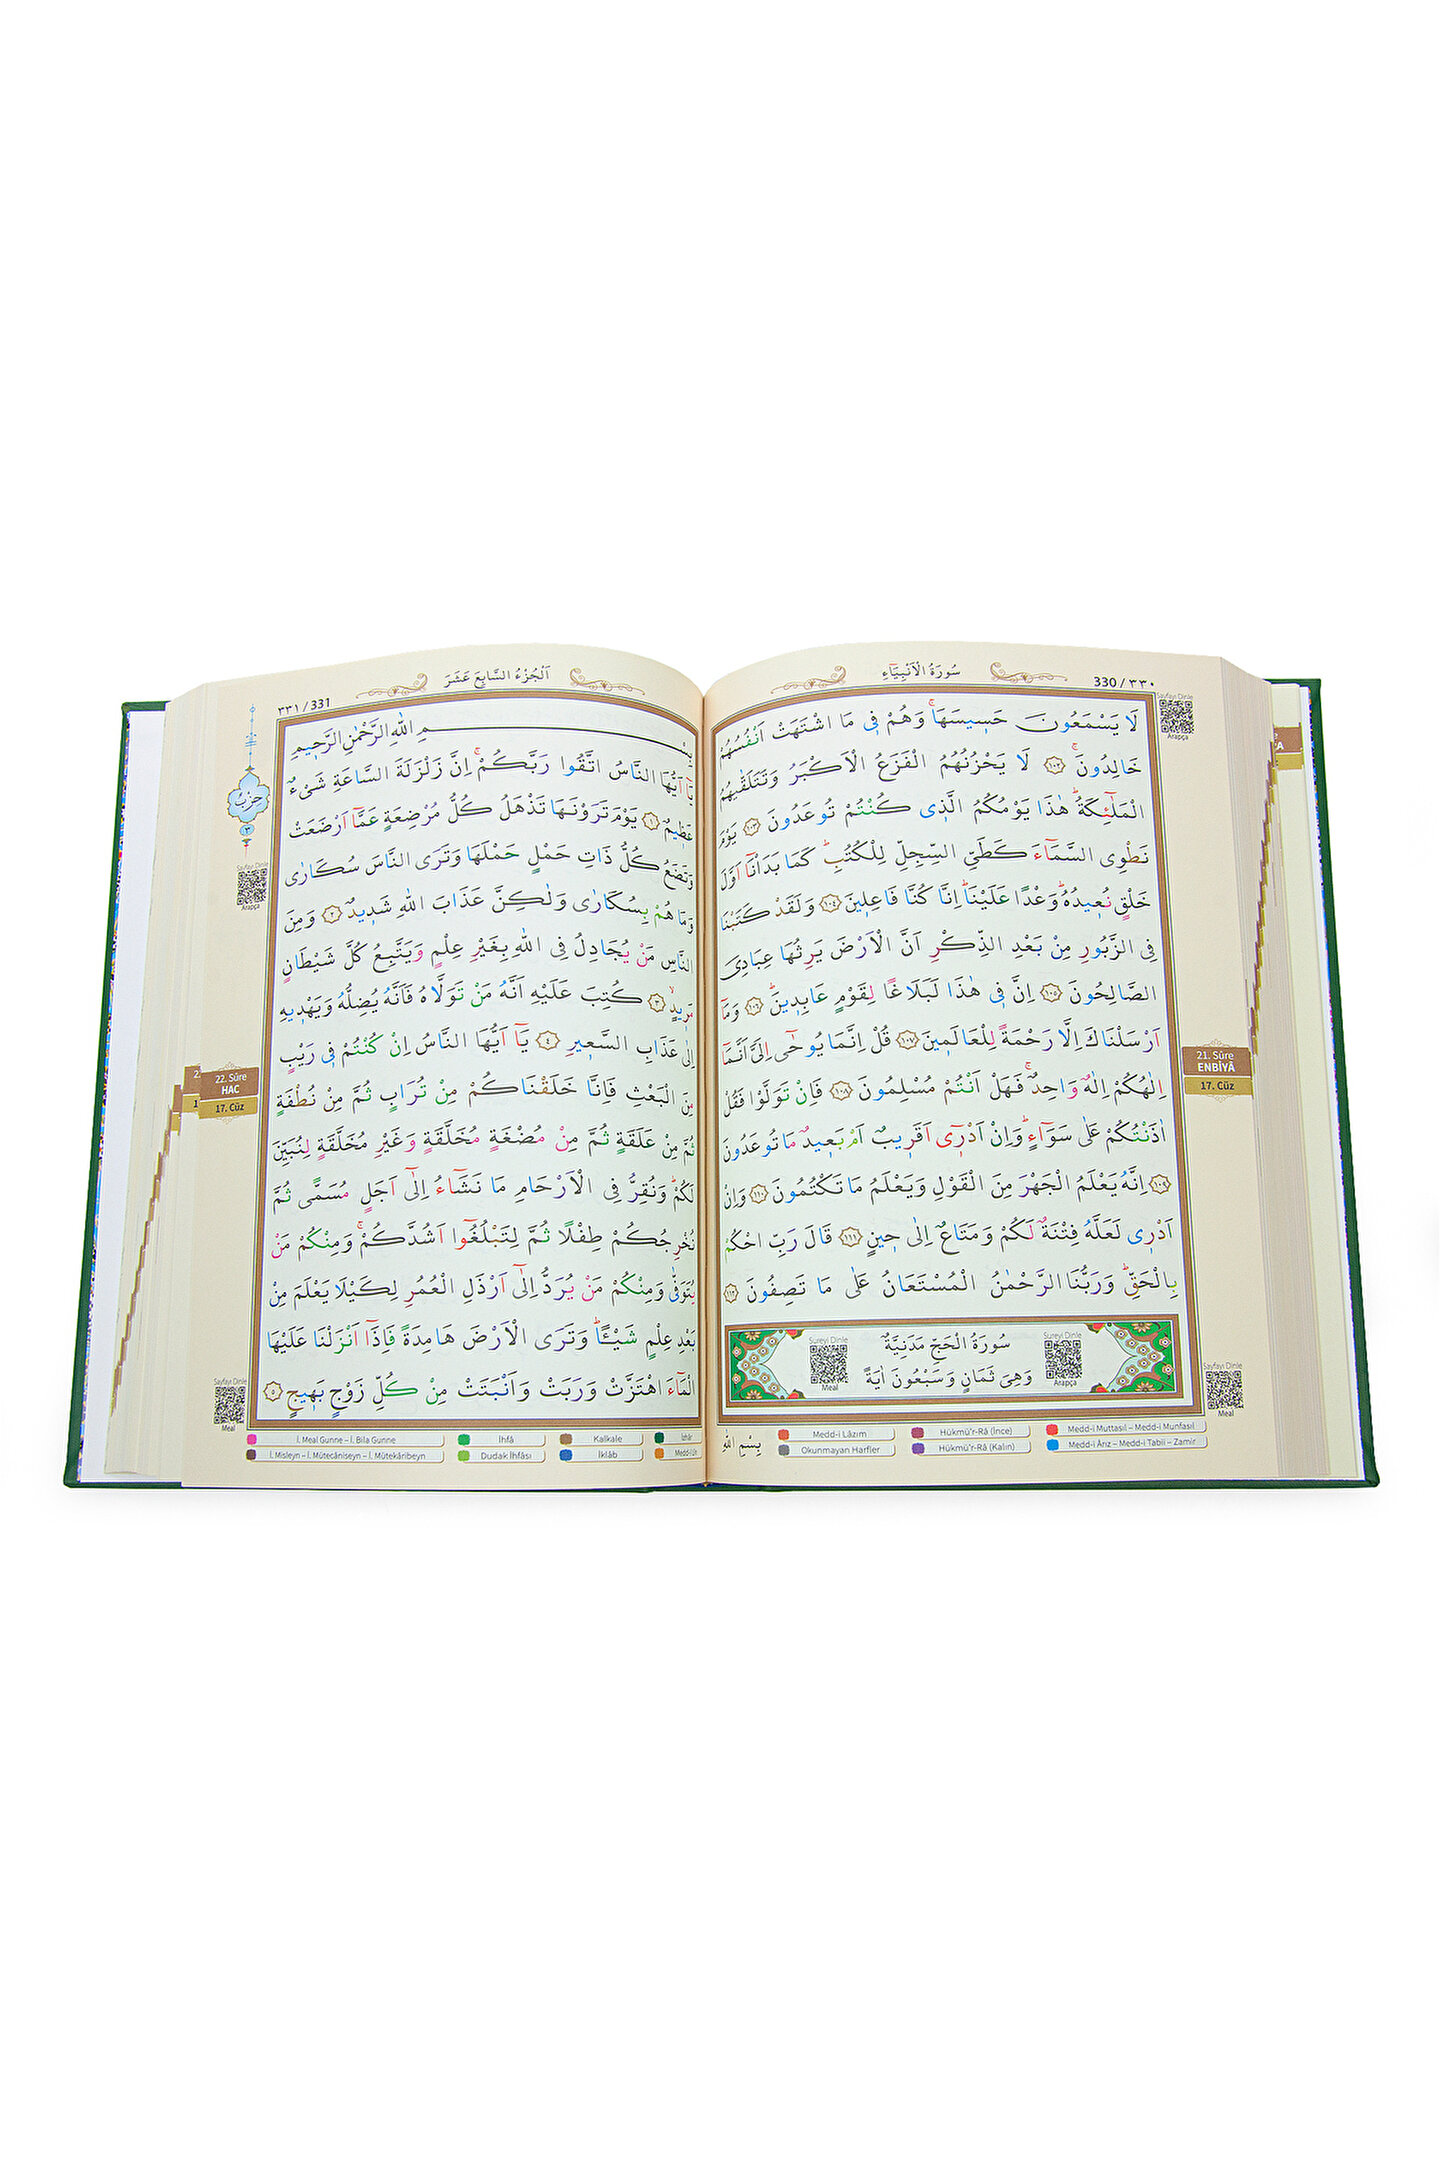 سُورَةُ الْاَنْبِيَٓاءِ
330 / ٣٣٠
لَا يَسْمَعُونَ حَسٖيسَهَاۚ وَهُمْ فٖي مَا اشْتَهَتْ اَنْفُسُهُمْ
خَالِدُونَۚ ﴿١٠٢﴾ لَا يَحْزُنُهُمُ الْفَزَعُ الْاَكْبَرُ وَتَتَلَقّٰيهُمُ
الْمَلٰٓئِكَةُؕ هٰذَا يَوْمُكُمُ الَّذٖي كُنْتُمْ تُوعَدُونَ ﴿١٠٣﴾ يَوْمَ
نَطْوِي السَّمَٓاءَ كَطَيِّ السِّجِلِّ لِلْكُتُبِؕ كَمَا بَدَأْنَٓا اَوَّلَ
خَلْقٍ نُعٖيدُهُؕ وَعْدًا عَلَيْنَاؕ اِنَّا كُنَّا فَاعِلٖينَ ﴿١٠٤﴾ وَلَقَدْ كَتَبْنَا
فِي الزَّبُورِ مِنْ بَعْدِ الذِّكْرِ اَنَّ الْاَرْضَ يَرِثُهَا عِبَادِيَ
الصَّالِحُونَ ﴿١٠٥﴾ اِنَّ فٖي هٰذَا لَبَلَاغًا لِقَوْمٍ عَابِدٖينَؕ ﴿١٠٦﴾ وَمَٓا
اَرْسَلْنَاكَ اِلَّا رَحْمَةً لِلْعَالَمٖينَ ﴿١٠٧﴾ قُلْ اِنَّمَا يُوحٰٓى اِلَيَّ اَنَّمَٓا
اِلٰهُكُمْ اِلٰهٌ وَاحِدٌۚ فَهَلْ اَنْتُمْ مُسْلِمُونَ ﴿١٠٨﴾ فَاِنْ تَوَلَّوْا فَقُلْ
اٰذَنْتُكُمْ عَلٰى سَوَٓاءٍؕ وَاِنْ اَدْرٖٓي اَقَرٖيبٌ اَمْ بَعٖيدٌ مَا تُوعَدُونَ
﴿١٠٩﴾ اِنَّهُ يَعْلَمُ الْجَهْرَ مِنَ الْقَوْلِ وَيَعْلَمُ مَا تَكْتُمُونَ ﴿١١٠﴾ وَاِنْ
اَدْرٖي لَعَلَّهُ فِتْنَةٌ لَكُمْ وَمَتَاعٌ اِلٰى حٖينٍ ﴿١١١﴾ قَالَ رَبِّ احْكُمْ
بِالْحَقِّؕ وَرَبُّنَا الرَّحْمٰنُ الْمُسْتَعَانُ عَلٰى مَا تَصِفُونَ ﴿١١٢﴾
سُورَةُ الْحَجِّ مَدَنِيَّةٌ
وَهِيَ ثَمَانٍ وَسَبْعُونَ اٰيَةً
Sureyi Dinle
Arapça
Sureyi Dinle
Meal
Sayfayı Dinle
Arapça
21. Sûre
ENBİYÂ
17. Cüz
Sayfayı Dinle
Meal
بِسْمِ اللّٰهِ
Medd-i Lâzım
Hükmü'r-Râ (İnce)
Medd-i Muttasıl – Medd-i Munfasıl
Okunmayan Harfler
Hükmü'r-Râ (Kalın)
Medd-i Ârız – Medd-i Tabii – Zamir
اَلْجُزْءُ السَّابِعَ عَشَرَ
٣٣١ / 331
بِسْمِ اللّٰهِ الرَّحْمٰنِ الرَّحٖيمِ
يَٓا اَيُّهَا النَّاسُ اتَّقُوا رَبَّكُمْۚ اِنَّ زَلْزَلَةَ السَّاعَةِ شَيْءٌ
عَظٖيمٌ ﴿١﴾ يَوْمَ تَرَوْنَهَا تَذْهَلُ كُلُّ مُرْضِعَةٍ عَمَّٓا اَرْضَعَتْ
وَتَضَعُ كُلُّ ذَاتِ حَمْلٍ حَمْلَهَا وَتَرَى النَّاسَ سُكَارٰى
وَمَا هُمْ بِسُكَارٰى وَلٰكِنَّ عَذَابَ اللّٰهِ شَدٖيدٌ ﴿٢﴾ وَمِنَ
النَّاسِ مَنْ يُجَادِلُ فِي اللّٰهِ بِغَيْرِ عِلْمٍ وَيَتَّبِعُ كُلَّ شَيْطَانٍ
مَرٖيدٍۙ ﴿٣﴾ كُتِبَ عَلَيْهِ اَنَّهُ مَنْ تَوَلَّاهُ فَاَنَّهُ يُضِلُّهُ وَيَهْدٖيهِ
اِلٰى عَذَابِ السَّعٖيرِ ﴿٤﴾ يَٓا اَيُّهَا النَّاسُ اِنْ كُنْتُمْ فٖي رَيْبٍ
مِنَ الْبَعْثِ فَاِنَّا خَلَقْنَاكُمْ مِنْ تُرَابٍ ثُمَّ مِنْ نُطْفَةٍ
ثُمَّ مِنْ عَلَقَةٍ ثُمَّ مِنْ مُضْغَةٍ مُخَلَّقَةٍ وَغَيْرِ مُخَلَّقَةٍ لِنُبَيِّنَ
لَكُمْؕ وَنُقِرُّ فِي الْاَرْحَامِ مَا نَشَٓاءُ اِلٰٓى اَجَلٍ مُسَمًّى ثُمَّ
نُخْرِجُكُمْ طِفْلًا ثُمَّ لِتَبْلُغُٓوا اَشُدَّكُمْۚ وَمِنْكُمْ مَنْ
يُتَوَفّٰى وَمِنْكُمْ مَنْ يُرَدُّ اِلٰٓى اَرْذَلِ الْعُمُرِ لِكَيْلَا يَعْلَمَ مِنْ
بَعْدِ عِلْمٍ شَيْـًٔاؕ وَتَرَى الْاَرْضَ هَامِدَةً فَاِذَٓا اَنْزَلْنَا عَلَيْهَا
الْمَٓاءَ اهْتَزَّتْ وَرَبَتْ وَاَنْبَتَتْ مِنْ كُلِّ زَوْجٍ بَهٖيجٍ ﴿٥﴾
حِزْبٌ
٣
Sayfayı Dinle
Arapça
22. Sûre
HAC
17. Cüz
Sayfayı Dinle
Meal
İ. Meal Gunne – İ. Bila Gunne
İhfâ
Kalkale
İzhâr
İ. Misleyn – İ. Mütecâniseyn – İ. Mütekâribeyn
Dudak İhfâsı
İklâb
Medd-i Lîn